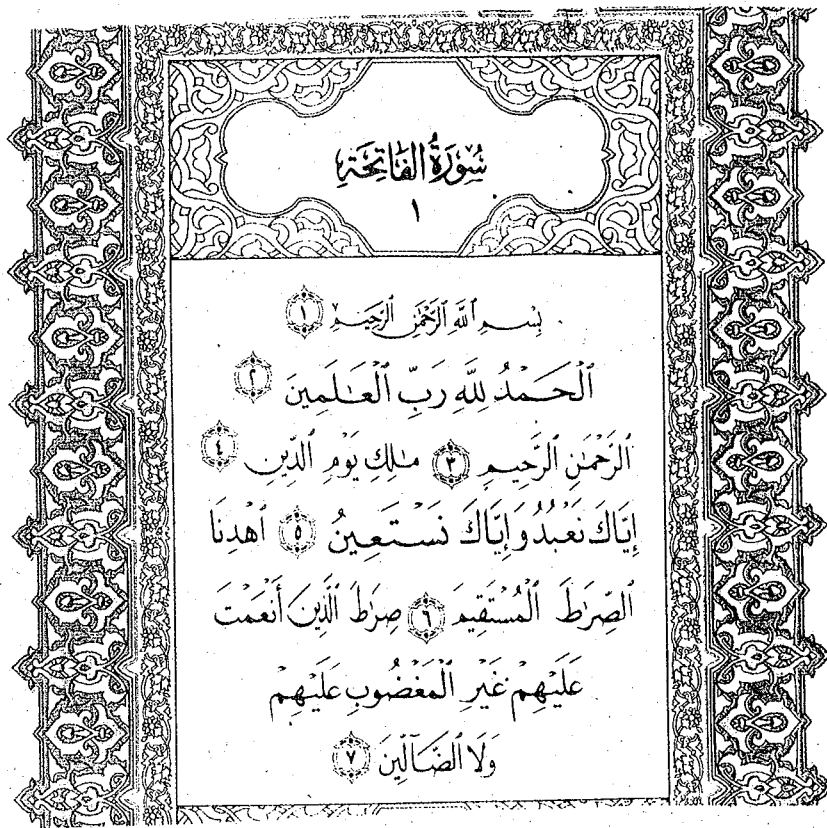 سُورَةُ الفَاتِحَةِ
١
بِسْمِ ٱللَّهِ ٱلرَّحْمَٰنِ ٱلرَّحِيمِ ١
ٱلْحَمْدُ لِلَّهِ رَبِّ ٱلْعَٰلَمِينَ ٢
ٱلرَّحْمَٰنِ ٱلرَّحِيمِ ٣ مَٰلِكِ يَوْمِ ٱلدِّينِ ٤
إِيَّاكَ نَعْبُدُ وَإِيَّاكَ نَسْتَعِينُ ٥ ٱهْدِنَا
ٱلصِّرَٰطَ ٱلْمُسْتَقِيمَ ٦ صِرَٰطَ ٱلَّذِينَ أَنْعَمْتَ
عَلَيْهِمْ غَيْرِ ٱلْمَغْضُوبِ عَلَيْهِمْ
وَلَا ٱلضَّآلِّينَ ٧